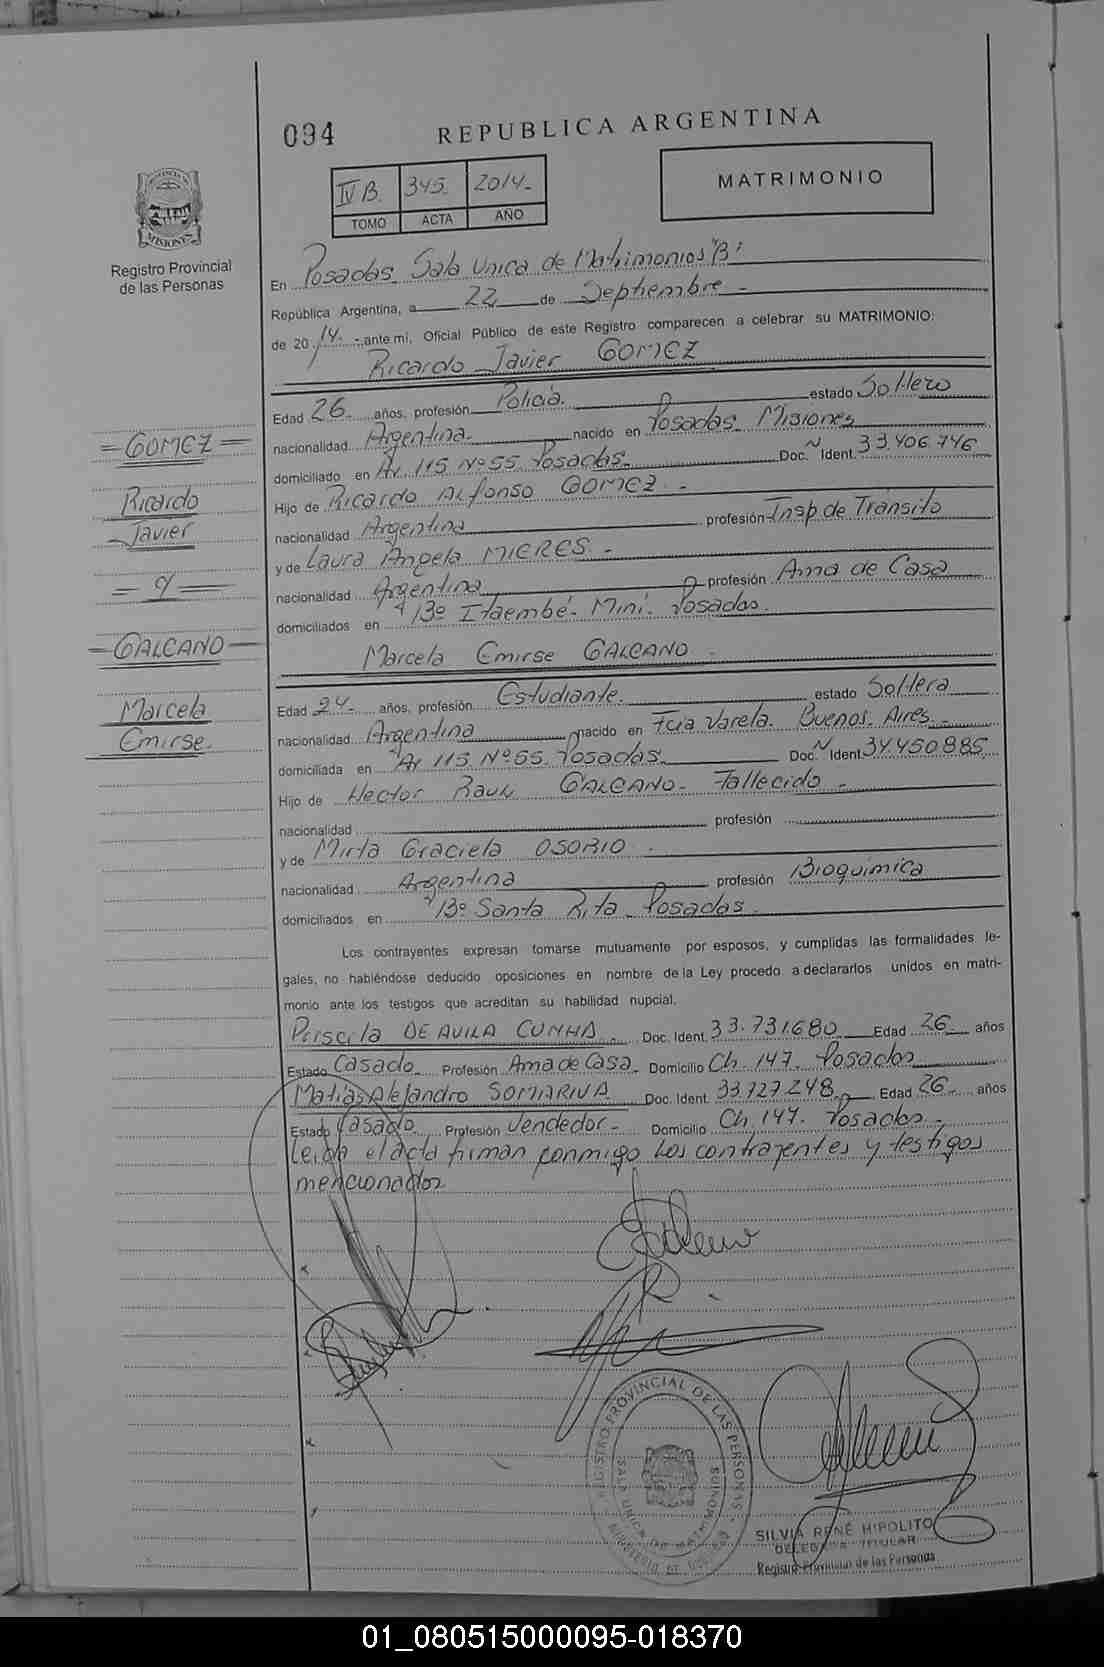 094
REPUBLICA ARGENTINA
IV B. 345. 2014.-
TOMO ACTA AÑO
MATRIMONIO
PROVINCIA DE
MISIONES
Registro Provincial
de las Personas
En Posadas Sala Unica de Matrimonios "B"
República Argentina, a 22 de Septiembre -
de 2014.- ante mí, Oficial Público de este Registro comparecen a celebrar su MATRIMONIO:
Ricardo Javier GOMEZ
Edad 26 años, profesión Policia. estado Soltero
nacionalidad Argentina. nacido en Posadas Misiones
domiciliado en Av 115 Nº 55 Posadas. Doc. N Ident. 33.406.746
Hijo de Ricardo Alfonso GOMEZ. -
nacionalidad Argentina profesión Insp. de Tránsito
y de Laura Angela MIERES. -
nacionalidad Argentina profesión Ama de Casa
domiciliados en Bº Itaembé - Mini. Posadas.
Marcela Emirse GALEANO -
Edad 24.- años, profesión Estudiante. estado Soltera
nacionalidad Argentina nacido en Fcia Varela. Buenos Aires -
domiciliada en Av 115 Nº 55 Posadas. Doc. N Ident. 34.450.885
Hijo de Hector Raul GALEANO - Fallecido -
nacionalidad profesión
y de Mirta Graciela OSORIO .
nacionalidad Argentina profesión Bioquimica
domiciliados en Bº Santa Rita - Posadas.
Los contrayentes expresan tomarse mutuamente por esposos, y cumplidas las formalidades le-
gales, no habiéndose deducido oposiciones en nombre de la Ley procedo a declararlos unidos en matri-
monio ante los testigos que acreditan su habilidad nupcial.
Priscila DE AVILA CUNHA. Doc. Ident. 33.731.680 Edad 26 años
Estado Casado Profesión Ama de Casa Domicilio Ch. 147. Posadas
Matias Alejandro SOMARIVA Doc. Ident. 33.727.248 Edad 26 años
Estado Casado Profesión Vendedor - Domicilio Ch. 147. Posadas -
Leida el acta firman conmigo los contrayentes y testigos
mencionados
= GOMEZ =
Ricardo
Javier
= y =
- GALEANO -
Marcela
Emirse.
REGISTRO PROVINCIAL DE LAS PERSONAS
SALA UNICA DE MATRIMONIOS
SILVIA RENÉ HIPOLITO
DELEGADA TITULAR
Registro Provincial de las Personas
01_080515000095-018370